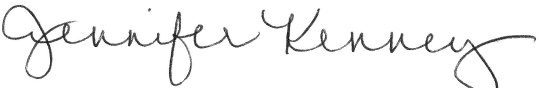 Jennifer Kenney